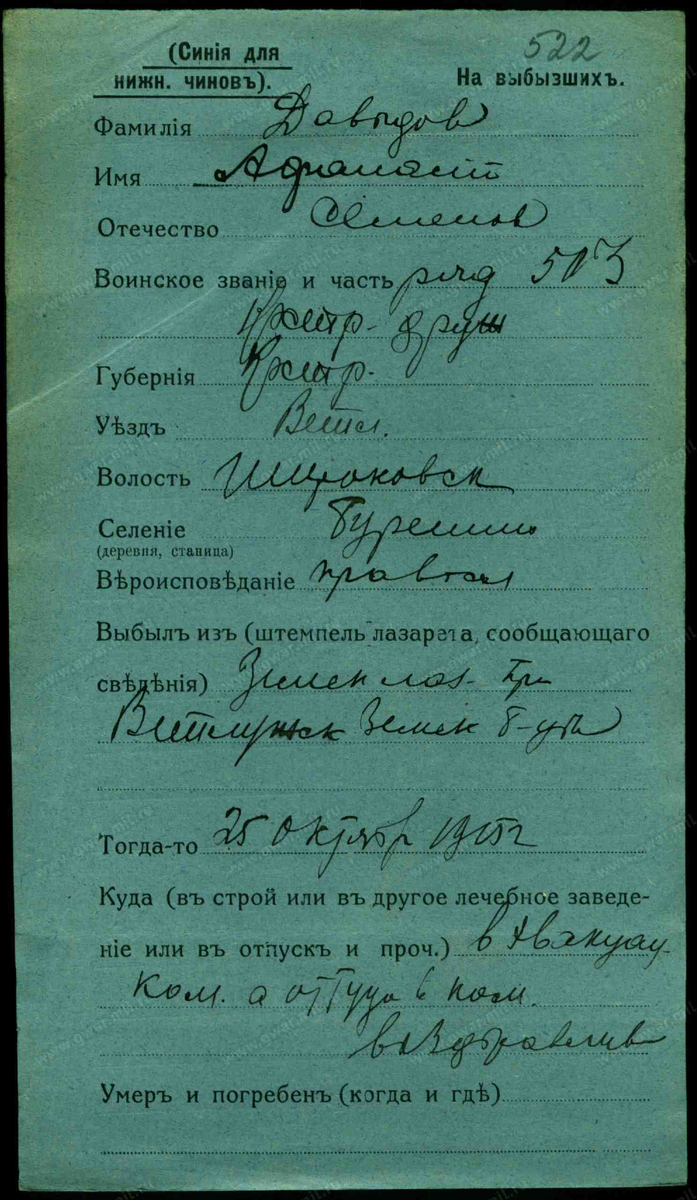 522
(Синія для
нижн. чиновъ).
На выбызшихъ.
Фамилія Давыдов
Имя Афанасий
Отечество Семенов
Воинское званіе и часть ряд 503
Кстр. друж
Губернія Кстр.
Уѣздъ Ветл.
Волость Широковск
Селеніе
(деревня, станица)
Вѣроисповѣданіе правосл
Выбылъ изъ (штемпель лазарета, сообщающаго
свѣдѣнія) Земск лаз. при
Ветлужск Земск б-це
Тогда-то 25 Октябр 1915 г
Куда (въ строй или въ другое лечебное заведе-
ніе или въ отпускъ и проч.) в Эвакуац.
Ком. а оттуда в ком.
выздоравлив
Умеръ и погребенъ (когда и гдѣ)